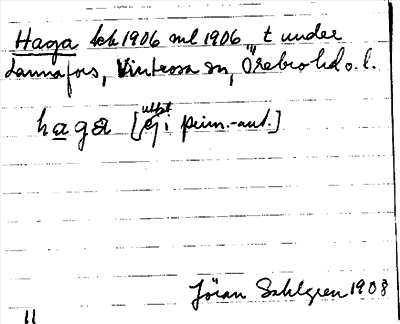 Haga lht 1906 ml 1906 t under
Lannafors, Vintrosa sn, Örebro hd o. l.
haga [utlat ej i prim.-ant.]
Jöran Sahlgren 1908
11